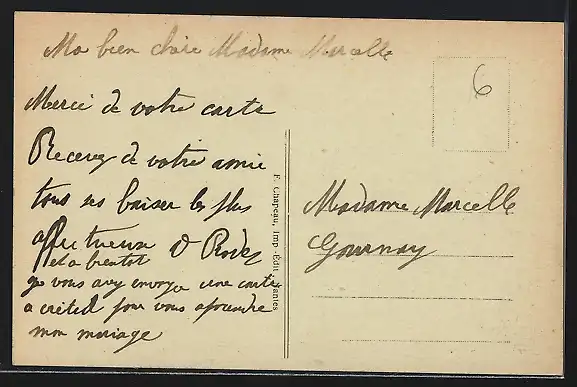 Ma bien chère Madame Marcelle
Merci de votre carte
Recevez de votre amie
tous ses baiser les plus
affectueux D Rodez
et a bientot
je vous avez envoye une carte
a creteil pour vous aprendre
mon mariage
F. Chapeau, Imp.-Édit., Nantes
6
Madame Marcelle
Gournay